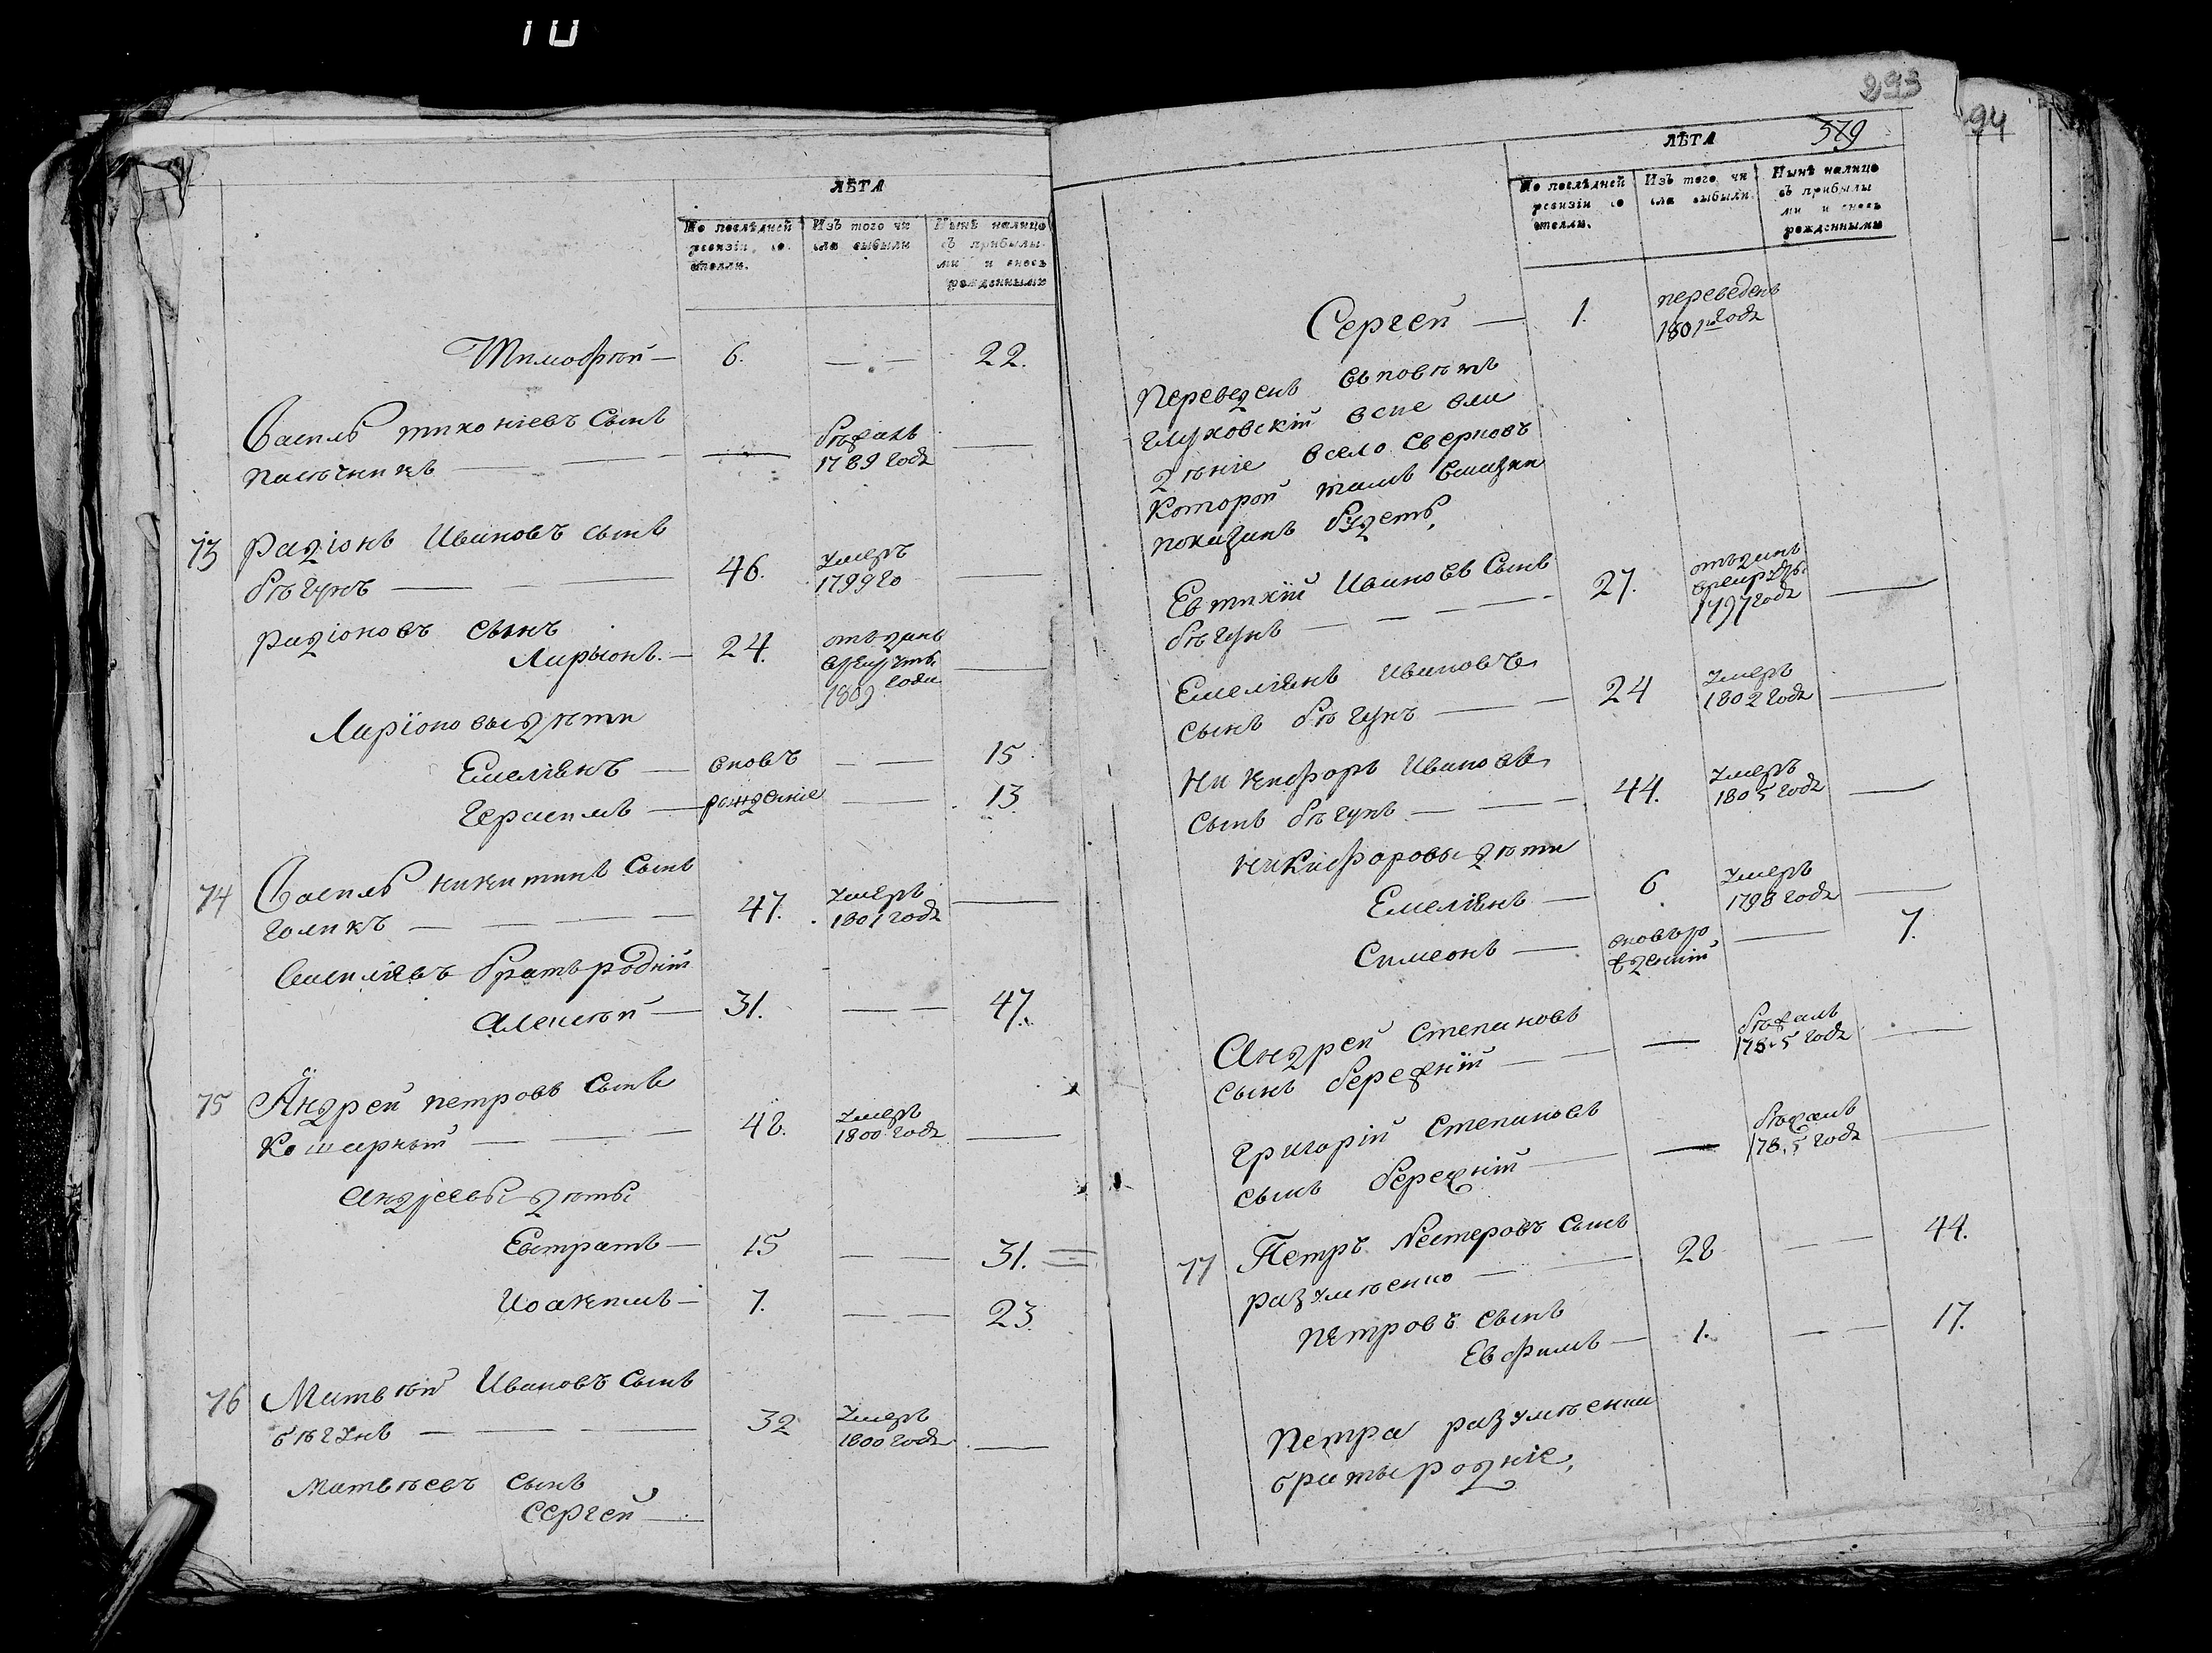 10
ЛѢТА
По послѣдней ревизіи состояли.
Изъ того числа выбыли
Нынѣ налицо съ прибылыми и вновь рожденными
Тимофѣй — 6. — — 22.
Василь тихоніевъ сынъ
пасѣчникъ — — — бѣжалъ 1789 годꙋ —
73 радіонъ Ивановъ сынъ
бѣгунъ — — 46. Умеръ 1799 го —
радіоновъ сынъ
Ларыонъ. — 24. отъданъ врекруты 1809 года —
Ларіоновы дѣти
Емеліянъ — вновъ — — 15
Герасимъ — рожденніе — — 13
74 Василь никитинъ сынъ
голикъ — — — 47. Умеръ 1801 годꙋ —
василіевъ братъ родній
Алексѣй — 31. — — 47.
75 Андрей петровъ сынъ
Кошарный — — — 48. Умеръ 1800 годꙋ —
андреевы дѣты
Евстратъ — 15 — — 31.
Иоакимъ — 7. — — 23
76 Матвѣй Ивановъ сынъ
бѣгунъ — — — 32 Умеръ 1800 годꙋ —
матвѣевъ сынъ
Сергей —
293
94
579
ЛѢТА
По послѣдней ревизіи состояли.
Изъ того числа выбыли.
Нынѣ налицо съ прибылыми и вновь рожденными
Сергей — 1. переведенъ 1801го годꙋ
переведенъ въповѣтъ
глуховскій
дѣніе всело Сверковъ
которой тамъ
показанъ будетъ,
Евтихій Ивановъ сынъ
бѣгунъ — — — 27. отъданъ врекруты 1797 годꙋ —
Емеліянъ ивановъ
сынъ бѣгунъ — — 24 Умеръ 1802 годꙋ —
никифоръ Ивановъ
сынъ бѣгунъ — — — 44. Умеръ 1805 годꙋ —
никифоровы дѣти
Емеліянъ — 6 Умеръ 1798 годꙋ —
Симеонъ — вновъро жденій — 7.
Андрей степановъ
сынъ бережній — — — бѣжалъ 1785 годꙋ —
григорій степановъ
сынъ бережній — — бѣжалъ 1785 годꙋ —
77 Петръ Нестеровъ сынъ
разумѣенко — — 28 — — 44.
петровъ сынъ
Евфимъ — 1. — — 17.
петра разумѣенка
браты родніе,